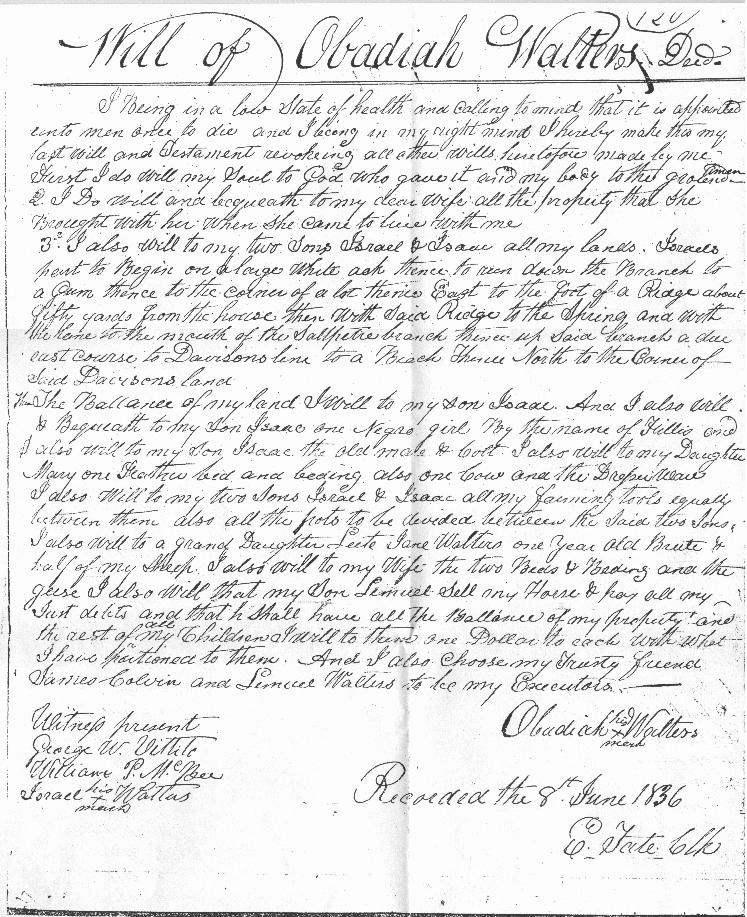 120
Will of Obadiah Walters Decd.
I Being in a low State of health and calling to mind that it is appointed
unto men once to die and I being in my right mind I hereby make this my
last Will and Testament revokeing all other wills heretofore made by me
First I do will my Soul to God who gave it and my body to the ground
amen
2 I Do will and bequeath to my dear wife all the property that She
Brought with her when She came to live with me
3. I also will to my two Sons Israel & Isaac all my lands. Israels
part to Begin on a large White ash thence to run down the Branch to
a Gum thence to the corner of a lot thence East to the foot of a Ridge about
fifty yards from the house then with Said Ridge to the Spring and with
the lane to the mouth of the Saltpetre branch thence up Said branch a due
east course to Davisons line to a Beach thence North to the Corner of
Said Davisons land
The Ballance of my land I Will to my Son Isaac. And I also will
& Bequeath to my Son Isaac one Negro girl By the name of Fillis and
I also will to my Son Isaac the old mare & Colt I also will to my Daughter
Mary one Feather bed and beding also one Cow and the Dresser Ware
I also Will to my two Sons Israel & Isaac all my farming tools equally
between them also all the pots to be devided between the Said two Sons.
I also will to a grand Daughter Jane Walters one Year old Brute &
half of my Sheep. I also will to my Wife the two Beds & Beding and the
geese I also Will that my Son Lemuel Sell my Horse & pay all my
Just debts and that he Shall have all the Ballance of my property and
the rest of my all Children I will to them one Dollar to each with what
I have portioned to them. And I also choose my Trusty friend
James Colvin and Lemuel Walters to be my Executors.
Obadiah his x mark Walters
Witness present
George W. Vittito
William P. McBee
Israel his x mark Walters
Recorded the 8th June 1836
E. Tate Clk